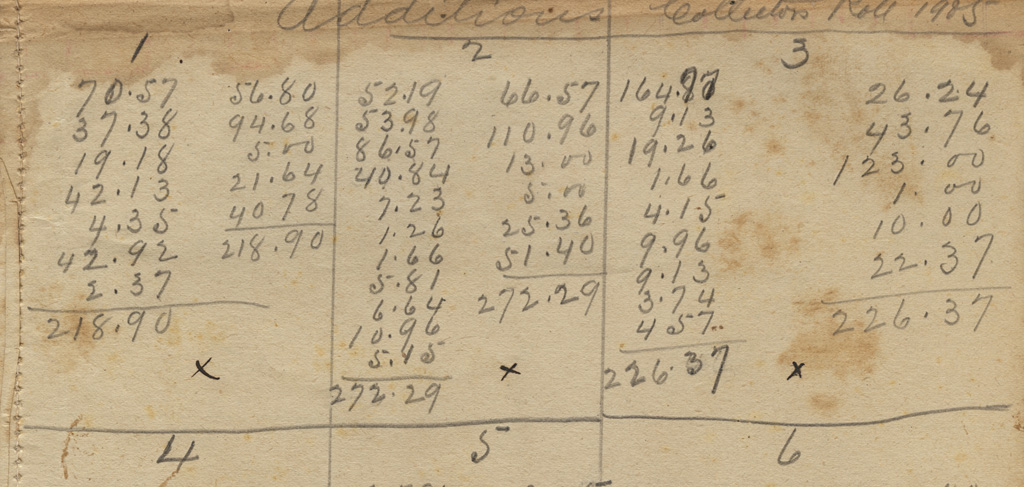 Additions Collectors Roll 1905
1
70.57
37.38
19.18
42.13
4.35
42.92
2.37
218.90
56.80
94.68
5.00
21.64
40 78
218.90
x
2
52.19
53.98
86.57
40.84
7.23
1.26
1.66
5.81
6.64
10.96
5.15
272.29
66.57
110.96
13.00
5.00
25.36
51.40
272.29
x
3
164.77
9.13
19.26
1.66
4.15
9.96
9.13
3.74
4 57
226.37
26.24
43.76
123.00
1.00
10.00
22.37
226.37
x
4
5
6